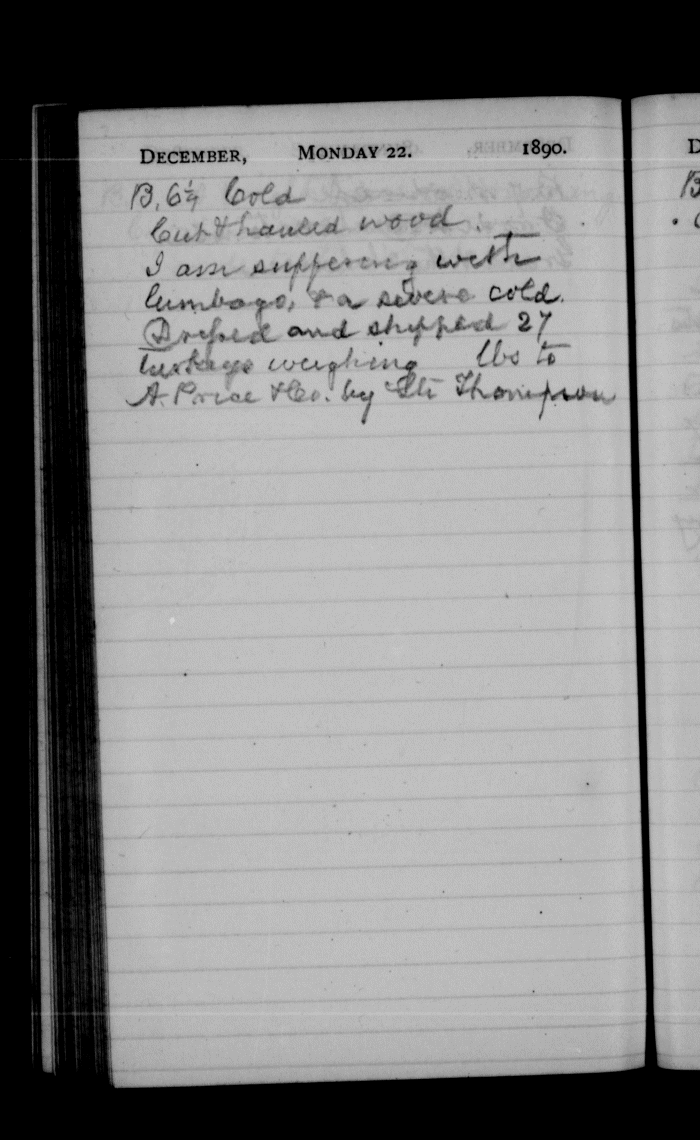 DECEMBER, MONDAY 22. 1890.
B. 6¼ Cold
Cut & hauled wood.
I am suffering with
lumbago, & a severe cold.
Dressed and shipped 27
turkeys weighing lbs to
A. Price & Co. by Thompson
D
B